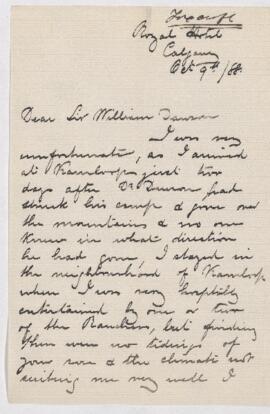 Foxcroft
Royal Hotel
Calgary
Oct 9th/88.
Dear Sir William Dawson
I was very
unfortunate, as I arrived
at Kamloops just two
days after Dr Dawson had
struck his camp & gone over
the mountains & no one
knew in what direction
he had gone, I stayed in
the neighbourhood of Kamloops
where I was very hospitably
entertained by one or two
of the Ranchers, but finding
there were no tidings of
your son & the climate not
suiting me very well I